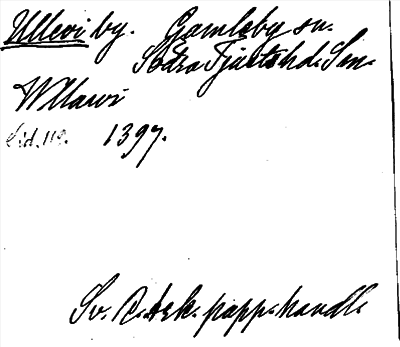 Ullevi by. Gamleby sn.
Södra Tjusts hd. Sm.
Wllawi
Sid. 119. 1397.
Sv. R. Ark. papp. handl.